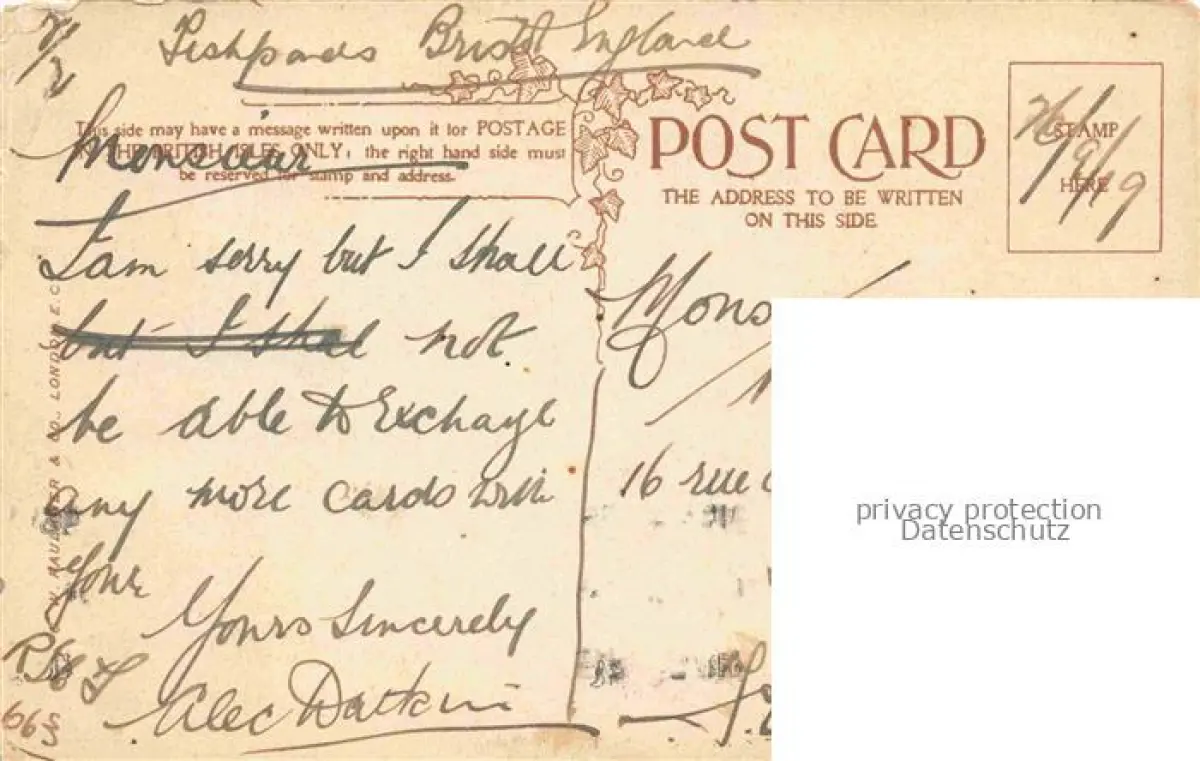 Fishponds Bristol England
This side may have a message written upon it for POSTAGE
IN THE BRITISH ISLES ONLY; the right hand side must
be reserved for stamp and address.
Monsieur
I am sorry but I shall
but I shal not
be able to Exchange
any more cards with
your
Yours Sincerely
Alec
POST CARD
THE ADDRESS TO BE WRITTEN
ON THIS SIDE
STAMP
HERE
Mons
16 rue
privacy protection
Datenschutz
& CO., LONDON E.C.